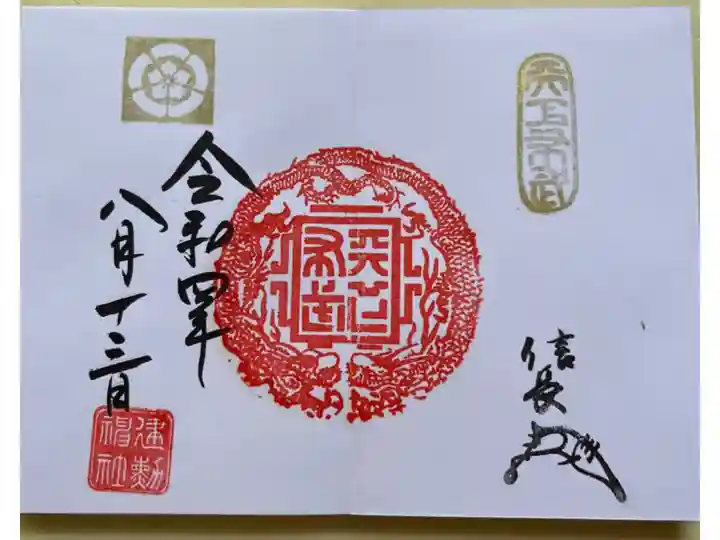 天下布武
信長
天下布武
令和四年
八月十三日
建勲神社